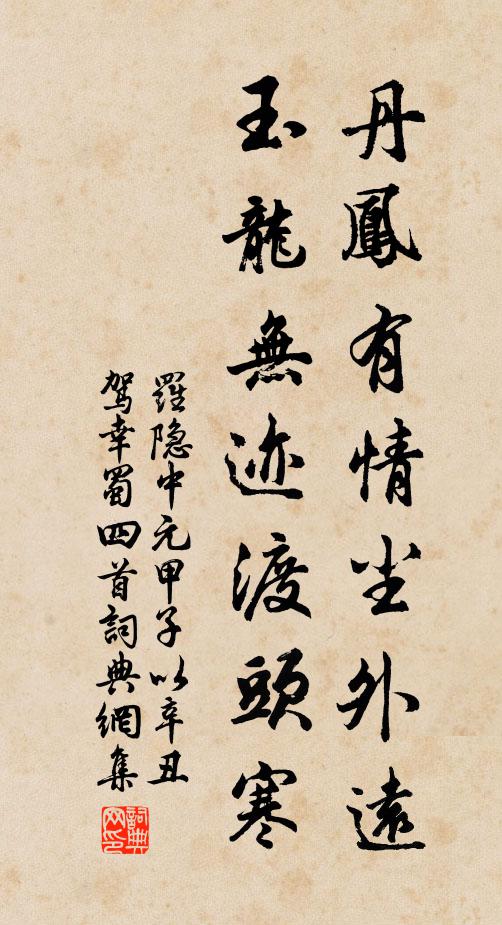 丹鳳有情尘外遠
玉龍無迹渡頭寒
羅隐中元甲子以辛丑
駕幸蜀四首詞典網集
詞典
网印